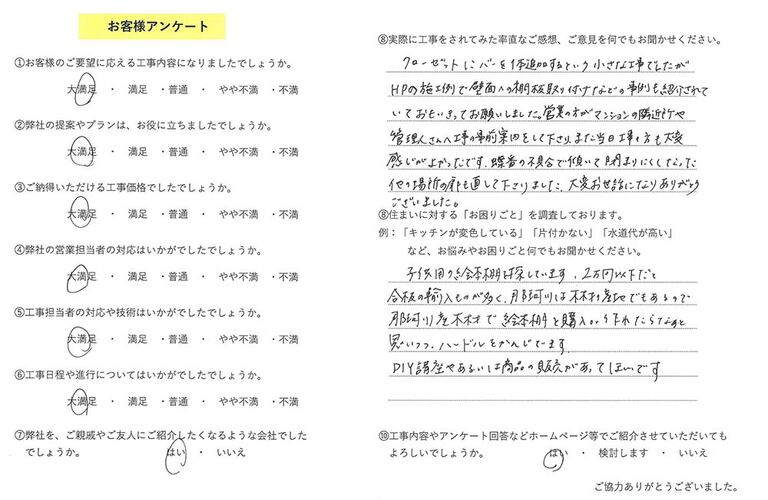 お客様アンケート
①お客様のご要望に応える工事内容になりましたでしょうか。
大満足 ・ 満足 ・普通 ・ やや不満 ・不満
②弊社の提案やプランは、お役に立ちましたでしょうか。
大満足 ・ 満足 ・普通 ・ やや不満 ・不満
③ご納得いただける工事価格でしたでしょうか。
大満足 ・ 満足 ・普通 ・ やや不満 ・不満
④弊社の営業担当者の対応はいかがでしたでしょうか。
大満足 ・ 満足 ・普通 ・ やや不満 ・不満
⑤工事担当者の対応や技術はいかがでしたでしょうか。
大満足 ・ 満足 ・普通 ・ やや不満 ・不満
⑥工事日程や進行についてはいかがでしたでしょうか。
大満足 ・ 満足 ・普通 ・ やや不満 ・不満
⑦弊社を、ご親戚やご友人にご紹介したくなるような会社でした
でしょうか。 はい ・ いいえ
⑧実際に工事をされてみた率直なご感想、ご意見を何でもお聞かせください。
クローゼットにバーを1本追加するという小さな工事でしたが
HPの施工例で壁面への棚板取り付けなどの事例も紹介されて
いておもいきってお願いしました。営業の方がマンションの隣近所や
管理人さんへ工事の事前案内をして下さり、また当日工事の方も大変
感じがよかったです。蝶番の不具合で傾いて閉まりにくくなった
他の場所の扉も直して下さりました。大変お世話になりありがとう
ございました。
⑧住まいに対する「お困りごと」を調査しております。
例：「キッチンが変色している」「片付かない」「水道代が高い」
など、お悩みやお困りごと何でもお聞かせください。
子供用の絵本棚を探しています。2万円以下だと
合板の輸入ものが多く、那珂川は木材産地でもあるので
那珂川産木材で絵本棚を購入or作れたらなぁと
思いつつ、ハードルをかんじてます。
DIY講座やあるいは商品の販売があってほしいです
⑩工事内容やアンケート回答などホームページ等でご紹介させていただいても
よろしいでしょうか。 はい ・ 検討します ・ いいえ
ご協力ありがとうございました。